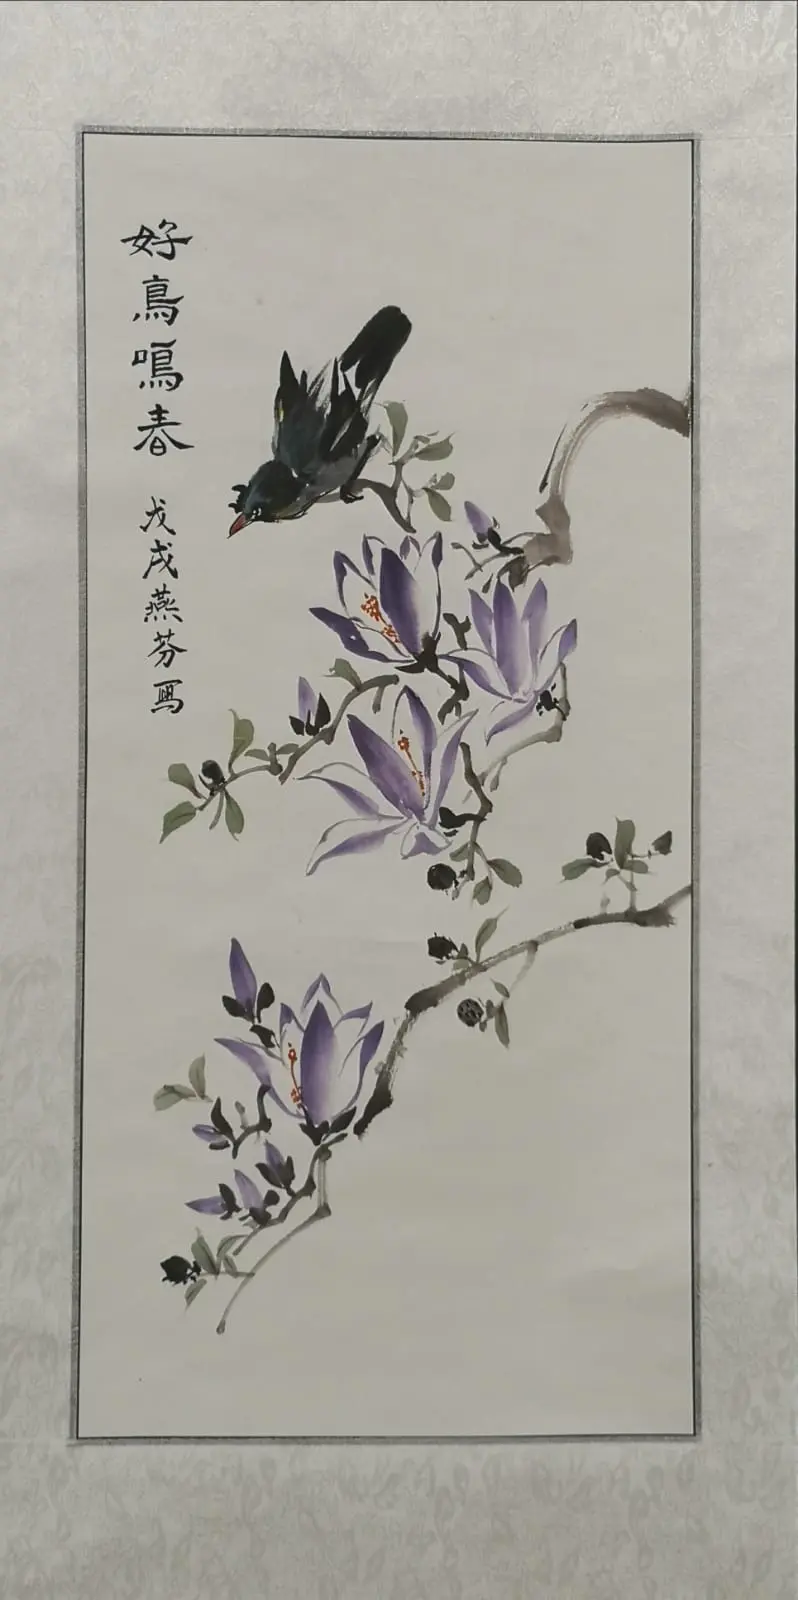 好鳥鳴春
戊戌燕芬寫